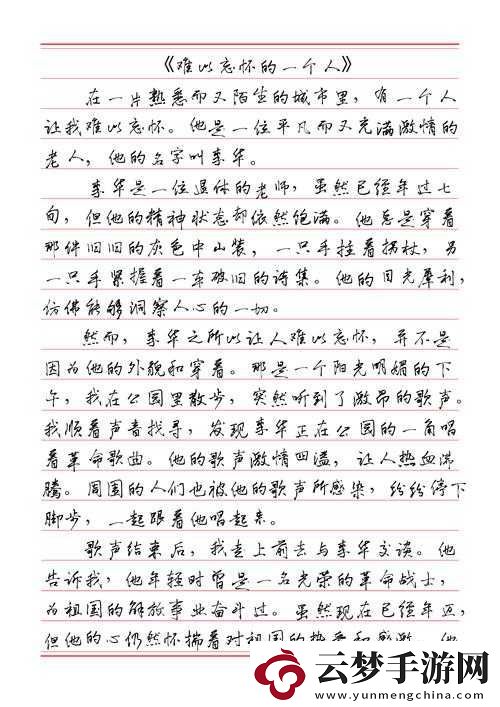 《难以忘怀的一个人》
在一片熟悉而又陌生的城市里，有一个人
让我难以忘怀。他是一位平凡而又充满激情的
老人，他的名字叫李华。
李华是一位退休的老师，虽然已经年过七
旬，但他的精神状态却依然饱满。他总是穿着
那件旧旧的灰色中山装，一只手拄着拐杖，另
一只手紧握着一本破旧的诗集。他的目光犀利，
仿佛能够洞察人心的一切。
然而，李华之所以让人难以忘怀，并不是
因为他的外貌和穿着。那是一个阳光明媚的下
午，我在公园里散步，突然听到了激昂的歌声。
我顺着声音找寻，发现李华正在公园的一角唱
着革命歌曲。他的歌声激情四溢，让人热血沸
腾。周围的人们也被他的歌声所感染，纷纷停下
脚步，一起跟着他唱起来。
歌声结束后，我走上前去与李华交谈。他
告诉我，他年轻时曾是一名光荣的革命战士，
为祖国的解放事业奋斗过。虽然现在已经年迈，
但他的心仍然怀揣着对祖国的热爱和
云梦手游网
www.yunmengchina.com